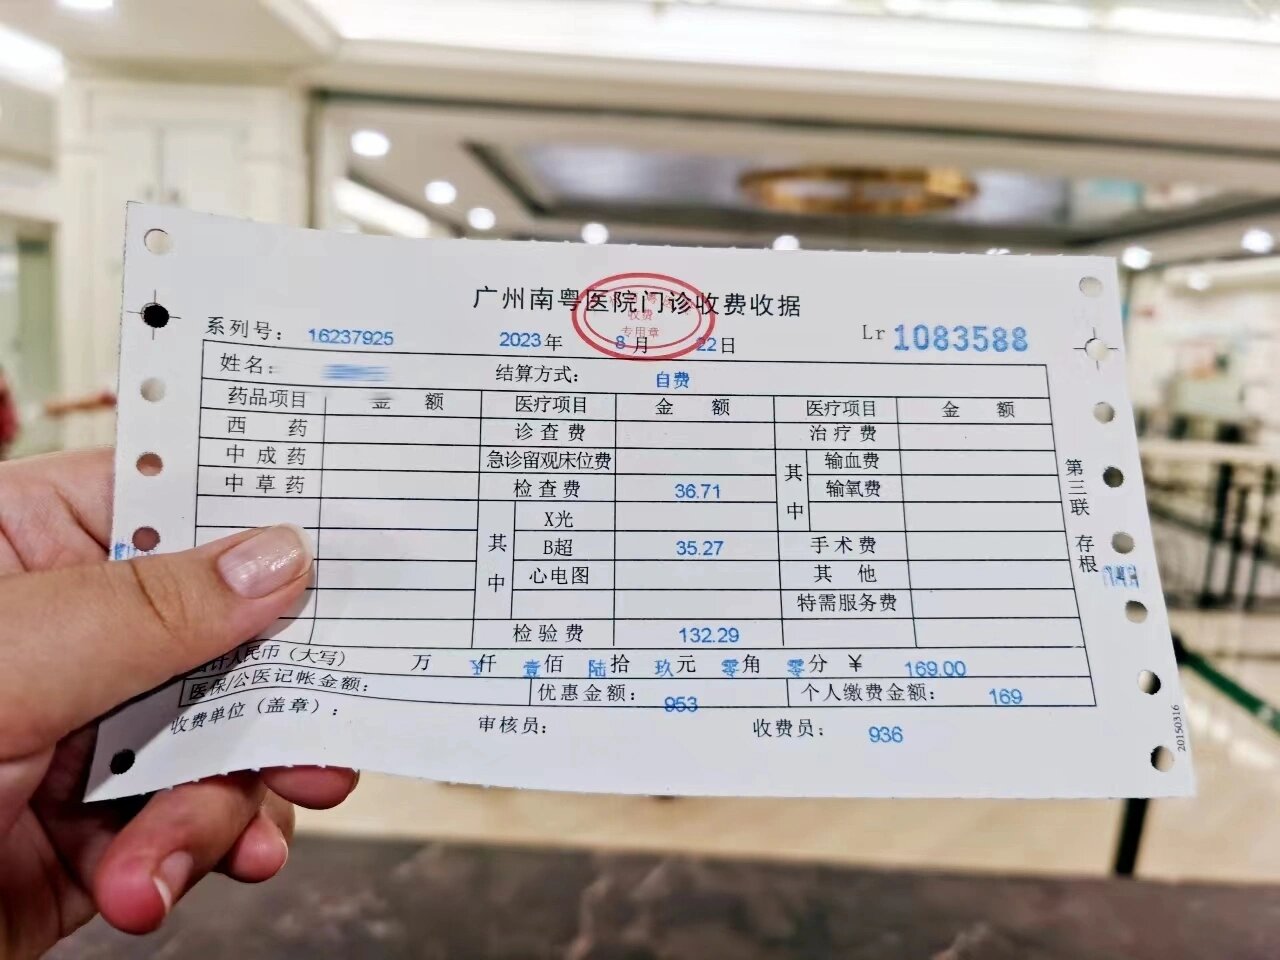 广州南粤医院门诊收费收据
收费
专用章
系列号: 16237925 2023年 8月 22日 Lr 1083588
姓名: 结算方式: 自费
药品项目 金 额 医疗项目 金 额 医疗项目 金 额
西 药 诊查费 治疗费
中成药 急诊留观床位费 其中 输血费
中草药 检查费 36.71 输氧费
其中 X光
B超 35.27 手术费
心电图 其 他
特需服务费
检验费 132.29
人民币(大写) 万 仟 壹佰 陆拾 玖元 零角 零分 ¥ 169.00
医保/公医记帐金额: 优惠金额: 953 个人缴费金额: 169
收费单位(盖章): 审核员: 收费员: 936
第三联 存根
20150316